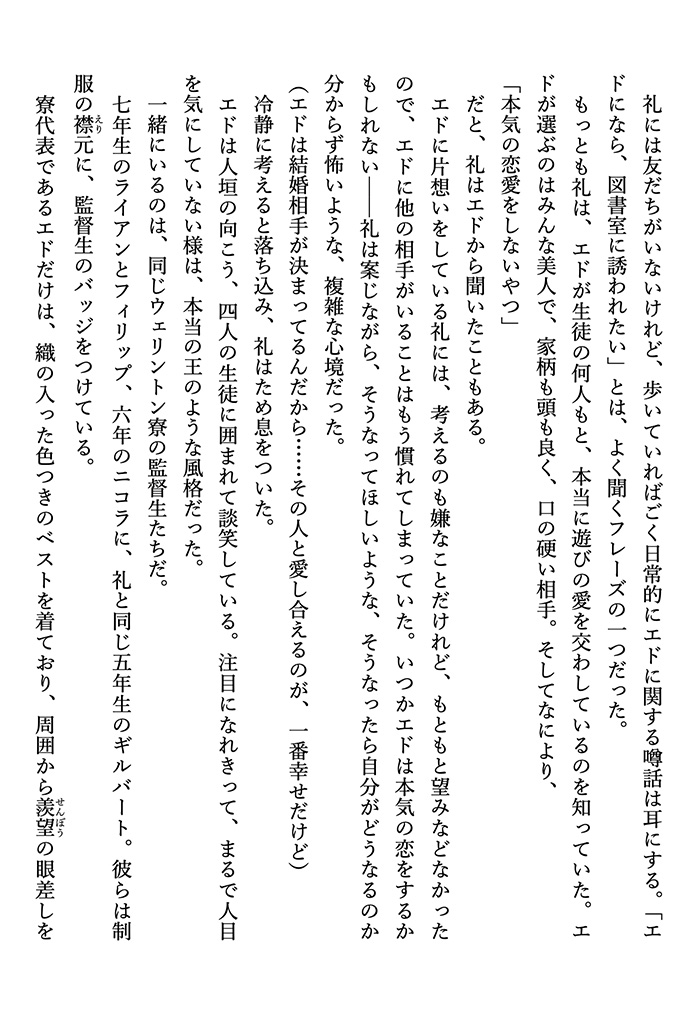 礼には友だちがいないけれど、歩いていればごく日常的にエドに関する噂話は耳にする。「エ
ドになら、図書室に誘われたい」とは、よく聞くフレーズの一つだった。
もっとも礼は、エドが生徒の何人もと、本当に遊びの愛を交わしているのを知っていた。エ
ドが選ぶのはみんな美人で、家柄も頭も良く、口の硬い相手。そしてなにより、
「本気の恋愛をしないやつ」
だと、礼はエドから聞いたこともある。
エドに片想いをしている礼には、考えるのも嫌なことだけれど、もともと望みなどなかった
ので、エドに他の相手がいることはもう慣れてしまっていた。いつかエドは本気の恋をするか
もしれない――礼は案じながら、そうなってほしいような、そうなったら自分がどうなるのか
分からず怖いような、複雑な心境だった。
(エドは結婚相手が決まってるんだから……その人と愛し合えるのが、一番幸せだけど)
冷静に考えると落ち込み、礼はため息をついた。
エドは人垣の向こう、四人の生徒に囲まれて談笑している。注目になれきって、まるで人目
を気にしていない様は、本当の王のような風格だった。
一緒にいるのは、同じウェリントン寮の監督生たちだ。
七年生のライアンとフィリップ、六年のニコラに、礼と同じ五年生のギルバート。彼らは制
服の襟元に、監督生のバッジをつけている。
寮代表であるエドだけは、織の入った色つきのベストを着ており、周囲から羨望の眼差しを